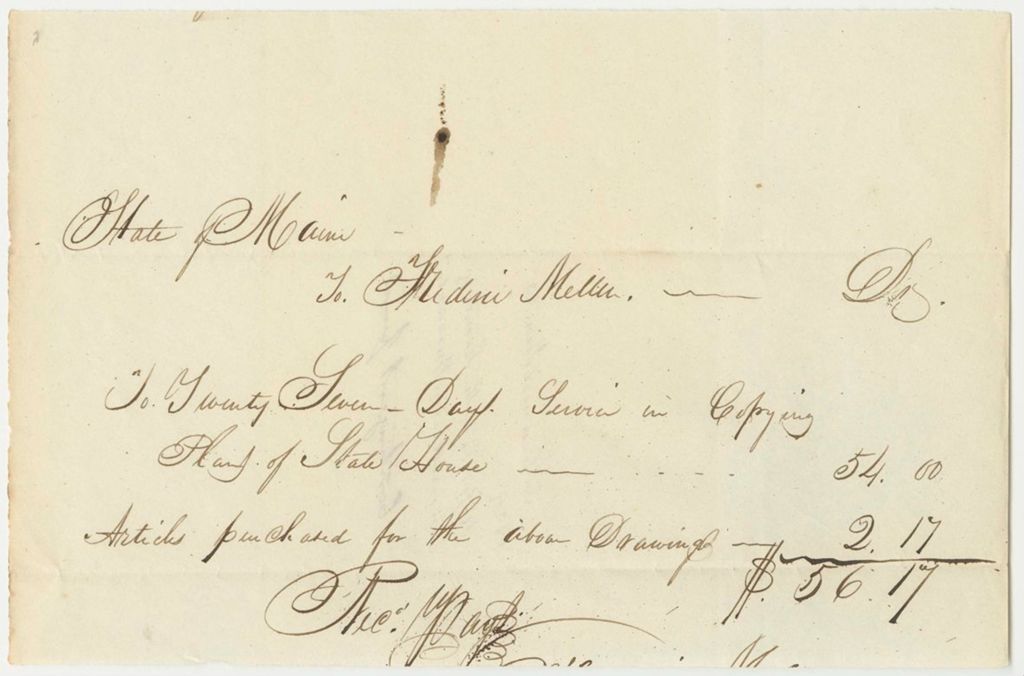 State of Maine
To. Frederic Mellen. Dr.
To. Twenty Seven Days Service in Copying
Plans of State House 54. 00
Articles purchased for the above Drawings 2. 17
$. 56. 17
Rec.d Payt.